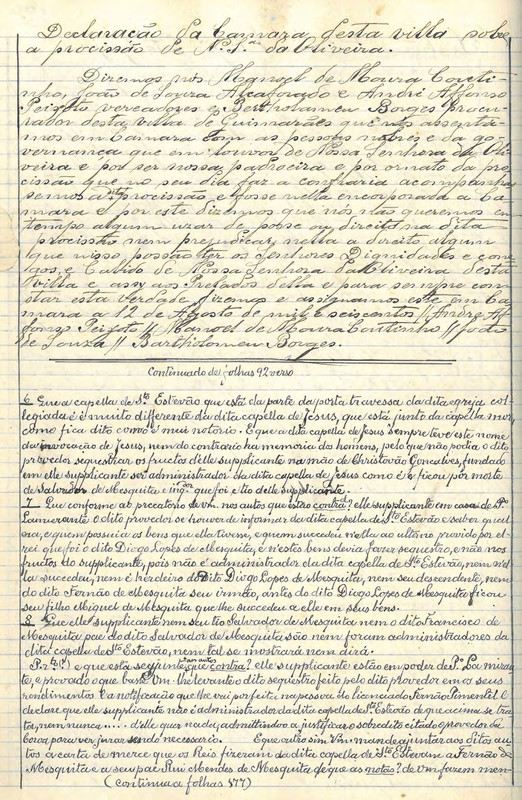 Declaração da Camara desta villa sobre
a procissão de N. S.ra da Oliveira.
Diremos nós Manoel de Moura Couti-
nho, João de Souza Alcaforado e André Affonso
Peixoto vereadores e Bertholameu Borges Procu-
rador desta villa de Guimarães que nós assentá-
mos em Camara com as pessoas nobres e da go-
vernança que em louvor de Nossa Senhora da Oli-
veira e por ser nossa padroeira e por ornato da pro-
cissão que no seu dia faz a confraria acompanhas-
semos a dita procissão e fosse nella encorporada a Ca-
mara e por este dizemos que nós não queremos em
tempo algum uzar de posse ou direito na dita
procissão nem prejudicar nella a direito algum
que nisso possão ter os Senhores Dignidades e cone-
gos, e Cabido de Nossa Senhora da Oliveira desta
Villa e assy aos Prelados della e para sempre com-
star esta verdade fizemos e assignamos este em Ca-
mara a 12 de Agosto de mil e seiscentos // André Af-
fonso Peixoto // Manoel de Moura Coutinho // João
de Souza // Bartholomeu Borges.
Continuado de folhas 92 verso
6. Que a capella de S.to Estevão que está da parte da porta travessa da dita egreja col-
legiada é é muito differente da dita capella de Jesus, que está junto da capella mor,
como fica dito como é mui notorio. E que a dita capella de Jesus sempre teve este nome
da invocação de Jesus, nem do contrario ha memoria dos homens, pelo que não podia o dito
provedor sequestrar os fructos d'elle supplicante na mão de Christovão Gonçalves, fundado
em elle supplicante ser administrador da dita capella de Jesus como é e ficou por morte
de Salvador de Mesquita e que foi e tio delle supplicante.
7. Que conforme ao precatorio de vm. nos autos que estão contrá? elle supplicante em casa de P.o
Lamirante. O dito provedor se houver de informar da dita capella de S.to Estevão e saber qual
era, e quem possuia os bens que ella tivesse, e quem succedeu n'ella ao ultimo provido por el-
rei que foi o dito Diogo Lopes de Mesquita, e n'estes bens devia fazer sequestro, e não nos
fructos do supplicante, pois não é administrador da dita capella de S.to Estevão, nem n'el-
la succedeu, nem é herdeiro do Dito Diogo Lopes de Mesquita, nem seu descendente, nem
do dito Fernão de Mesquita seu irmão, antes do dito Diogo Lopes de Mesquita ficou
seu filho Miguel de Mesquita que lhe succedeu a elle em seus bens.
8. Que elle supplicante nem seu tio Salvador de Mesquita nem o dito Francisco de
Mesquita pae do dito Salvador de Mesquita são nem foram administradores da
dita capella de S.to Estevão, nem tal se mostrará nem dirá.
e que esta se junte que contra? elle supplicante estão em poder de P.o La miran-
te, e provado o que baste Vm. lhe levante o dito sequestro feito pelo dito provedor em os seus
rendimentos e a notificação que lhe vai por feita na pessoa do licenciado Fernão Pimentel. E
declare que elle supplicante não é administrador da dita capella de S.to Estevão de que acima se tra-
ta, nem nunca ..... d'elle quer nada, admittindo a justificar o sobredito citado o provedor da
Coroa para ver jurar sendo necessario. E que outro sim Vm. mande ajuntar aos ditos au-
tos a carta de merce que os Reis fizeram da dita capella de S.to Estevam a Fernão de
Mesquita e a seu pae Rui Mendes de Mesquita de que as notas? de vm fazem men-
(continua a folhas 177)